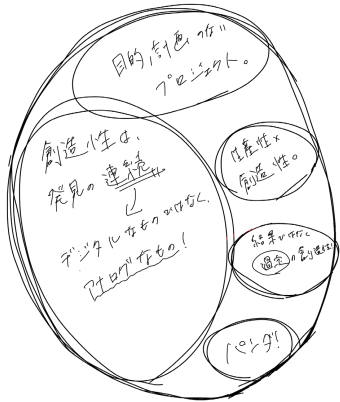 目的、計画のない
プロジェクト。
創造性は、
発見の連続
デジタルなものではなく、
アナログなもの!
生産性×
創造性。
結果ではなく
過程の創造性
パンダ!